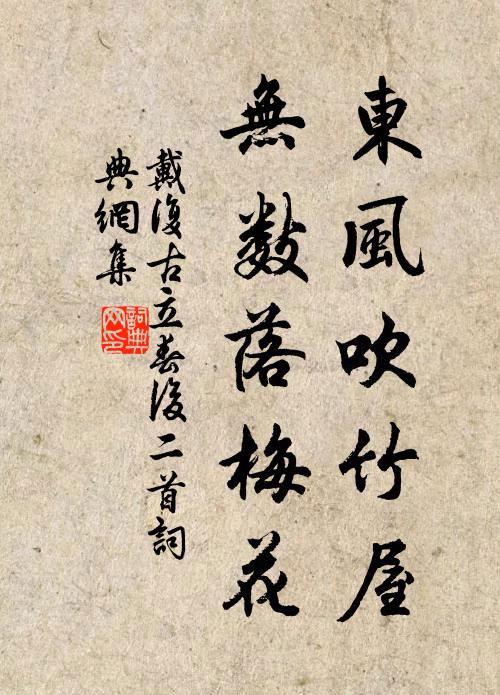 東風吹竹屋
無数落梅花
戴復古立春後二首詞
典網集
詞典
网印